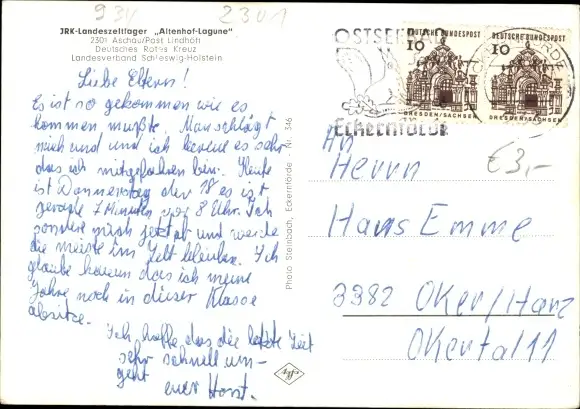 934 2301
JRK-Landeszeltlager „Altenhof-Lagune"
2301 Aschau/Post Lindhöft
Deutsches Rotes Kreuz
Landesverband Schleswig-Holstein
Liebe Eltern!
Es ist so gekommen wie es
kommen mußte. Man schlägt
mich und ich bereue es sehr
das ich mitgefahren bin. Heute
ist Donnerstag der 18 es ist
gerade 7 Minuten vor 8 Uhr. Ich
sondere mich jetzt ab und werde
die meiste im Zelt bleiben. Ich
glaube kaum das ich meine
Jahre noch in dieser Klasse
absitze.
Ich hoffe das die letzte Zeit
sehr schnell um-
geht
euer Horst.
Photo Steinbach, Eckernförde - Nr. 346
OSTSEE
Eckernförde
DEUTSCHE BUNDESPOST
10
DRESDEN/SACHSEN
DEUTSCHE BUNDESPOST
10
DRESDEN/SACHSEN
An
Herrn
€3,-
Hans Emme
3382 Oker/Harz
Okertal 11